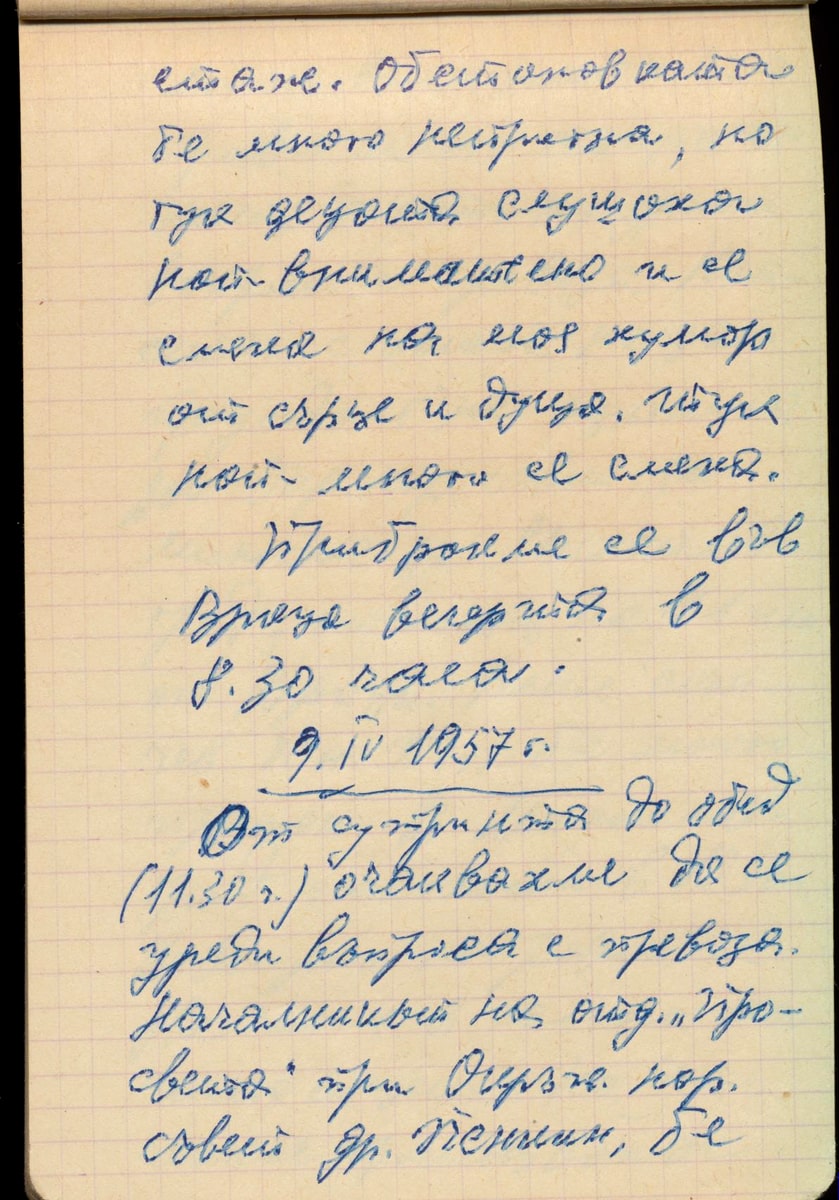 стаж. Обстановката
бе много неприятна, но
тук децата слушаха
най-внимателно и се
смяха на моя хумор
от сърце и душа. И тук
най-много се смяха.
Прибрахме се във
Враца вечерта в
8.30 часа.
9. IV 1957 г.
От сутринта до обед
(11.30 ч.) очаквахме да се
уреди въпроса с превоза.
Началникът на отд. „Про-
света“ при Окръж. нар.
съвет др. , бе